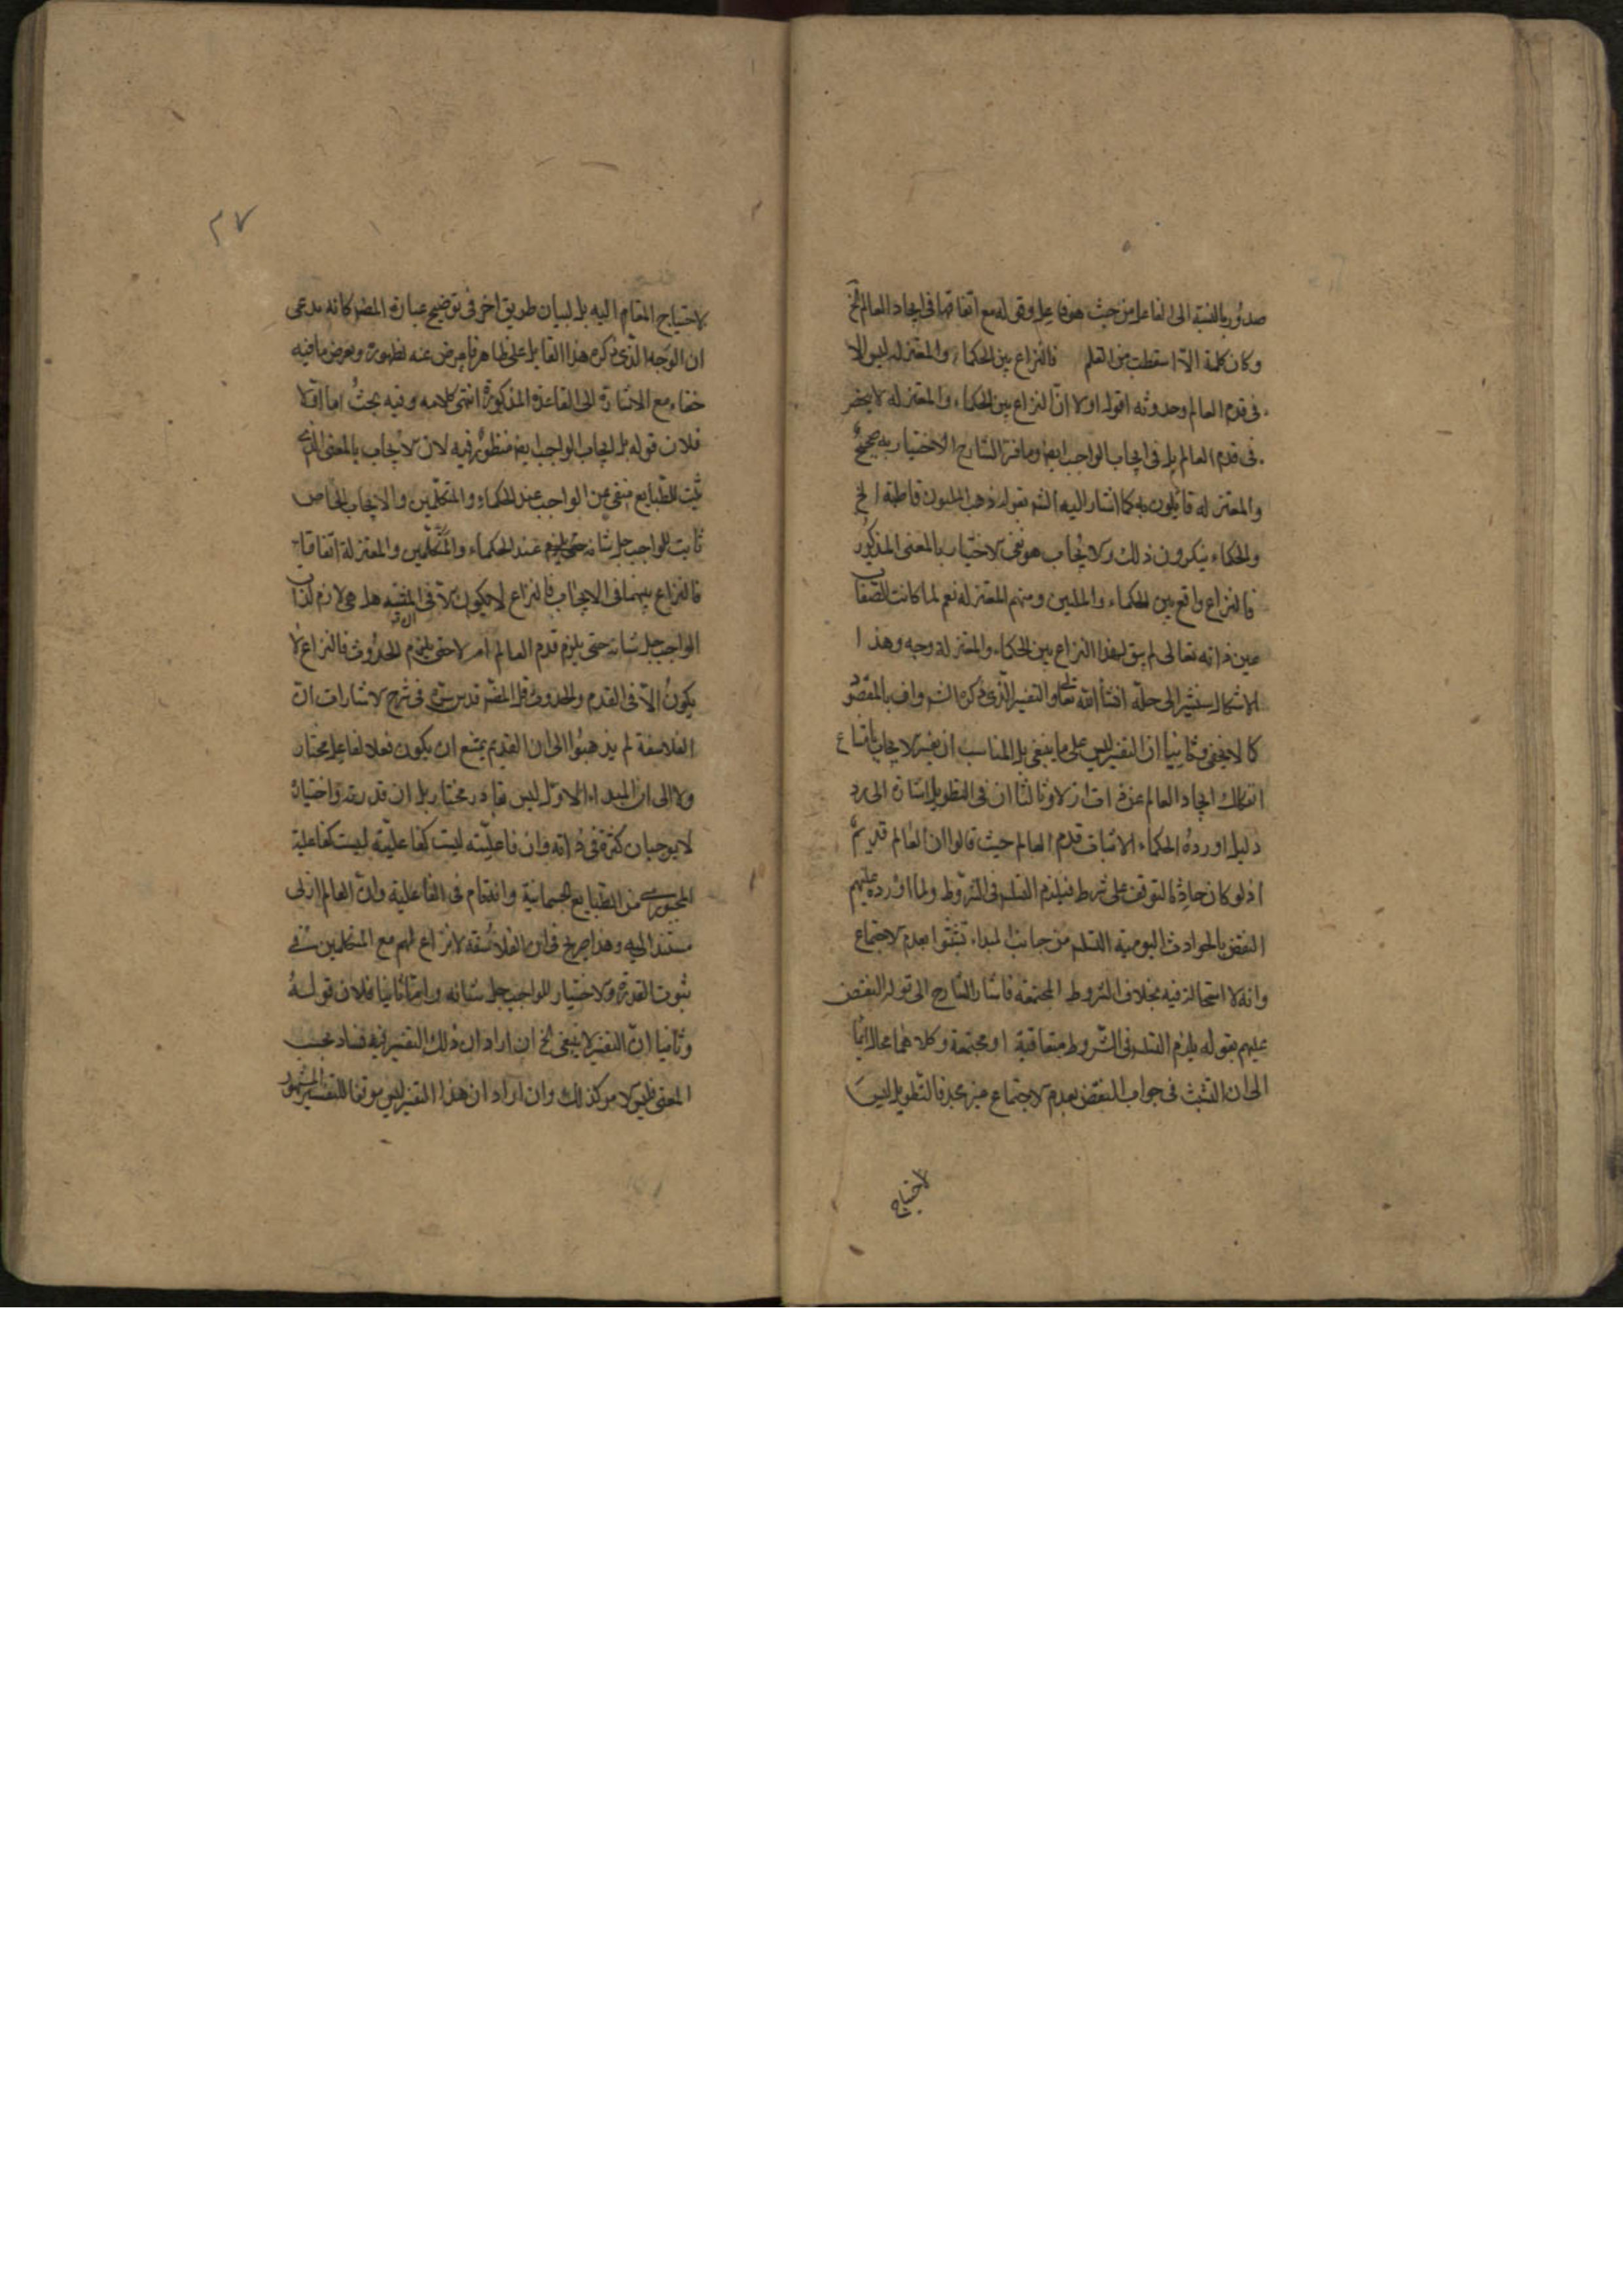 صدور بالنسبة الى الفاعل من حيث هو فاعل وقوله مع اتفاقهما فى ايجاد العالم الخ
وكان كلمة الّا اسقطت من القلم فالنزاع بين الحكماء والمعتزله ليس الا
فى قدم العالم وحدوثه اقول اولا انّ النزاع بين الحكماء والمعتزله لا ينحصر
فى قدم العالم بل فى ايجاب الواجب ايضا وما فسّر الشارح الاختيار به صحيح
والمعتزله قائلون به كما اشار اليه الشه بقوله ذهب المليون قاطبة الخ
والحكماء ينكرون ذلك والايجاب هو نفى الاختيار بالمعنى المذكور
فالنزاع واقع بين الحكماء والمليين ومنهم المعتزله نعم لما كانت الصّفات
عين ذاته تعالى لم يبق لهذا النزاع بين الحكماء والمعتزلة وجه وهذا
الاشكال سنشير الى حلّه انشأ الله تعالى والتفسير الّذى ذكره الشه واف بالمقصود
كما لا يخفى وثانيا ان التفسير ليس على ما ينبغى بل المناسب ان يفسر الايجاب بامتناع
انفكاك ايجاد العالم عن ذات ازلا وثالثا ان فى التطويل اشارة الى رد
دليل اورده الحكماء الاثبات قدم العالم حيث قالوا ان العالم قديم
اذ لو كان حادثا لتوقف على شرط فيلزم التسلسل فى الشروط ولما اورد عليهم
النقض بالحوادث اليومية التسلسل من جانب المبداء تشبثوا بعدم الاجتماع
وانه لا استحالة فيه بخلاف الشروط المجتمعة فاشار الشارح الى قوله النقض
عليهم بقوله يلزم التسلسل فى الشروط متعاقبة او مجتمعة وكلاهما محال ايمأ
الى ان التشبث فى جواب النقض بعدم الاجتماع غير مجد فالتطويل ليس
لاحتياج
٢٧
لاحتياج المقام اليه بل لبيان طريق اخر فى توضيح عبارة المصه كانه يدعى
ان الوجه الذى ذكره هذا القايل على ظاهره فاعرض عنه لظهوره وتعرض ما فيه
خفاء مع الاشارة الى القاعدة المذكورة انتهى كلامه وفيه بحث اما اولا
فلان قوله بل ايجاب الواجب ايضا منظور فيه لان الايجاب بالمعنى الذى
ثبت للطبايع منفى عن الواجب عند الحكماء والمتكلمين والايجاب الخاص
ثابت للواجب جل شانه عند الحكماء والمتكلمين والمعتزلة اتفاقا
فالنزاع بينهما فى الايجاب فالنزاع لا يكون الا فى هل هى لازم لذات
الواجب جل شانه حتى يلزم قدم العالم ام لا حتى يلزم الحدوث فالنزاع لا
يكون الّا فى القدم والحدوث قال المصه قدس سره فى شرح الاشارات ان
الفلاسفة لم يذهبوا الى ان القديم يمتنع ان يكون فعلا لفاعل مختار
ولا الى ان المبداء الاول ليس بقادر مختار بل ان قدرته واختياره
لا يوجبان كثرة فى ذاته وان فاعليته ليست كفاعليته ليست كفاعلية
المجبورين من الطبايع الجسمانية وانه تام فى الفاعلية وان العالم ازلى
مستند اليه وهذا صريح فى ان الفلاسفة لا نزاع لهم مع المتكلمين فى
ثبوت القدرة والاختيار للواجب جل شانه وامّا ثانيا فلان قوله
وثانيا انّ التفسير لا ينبغى الخ ان اراد ان ذلك التفسير فيه فساد بحسب
المعنى فليس الامر كذلك وان اراد ان هذا التفسير ليس موافقا للتفسير المشهور